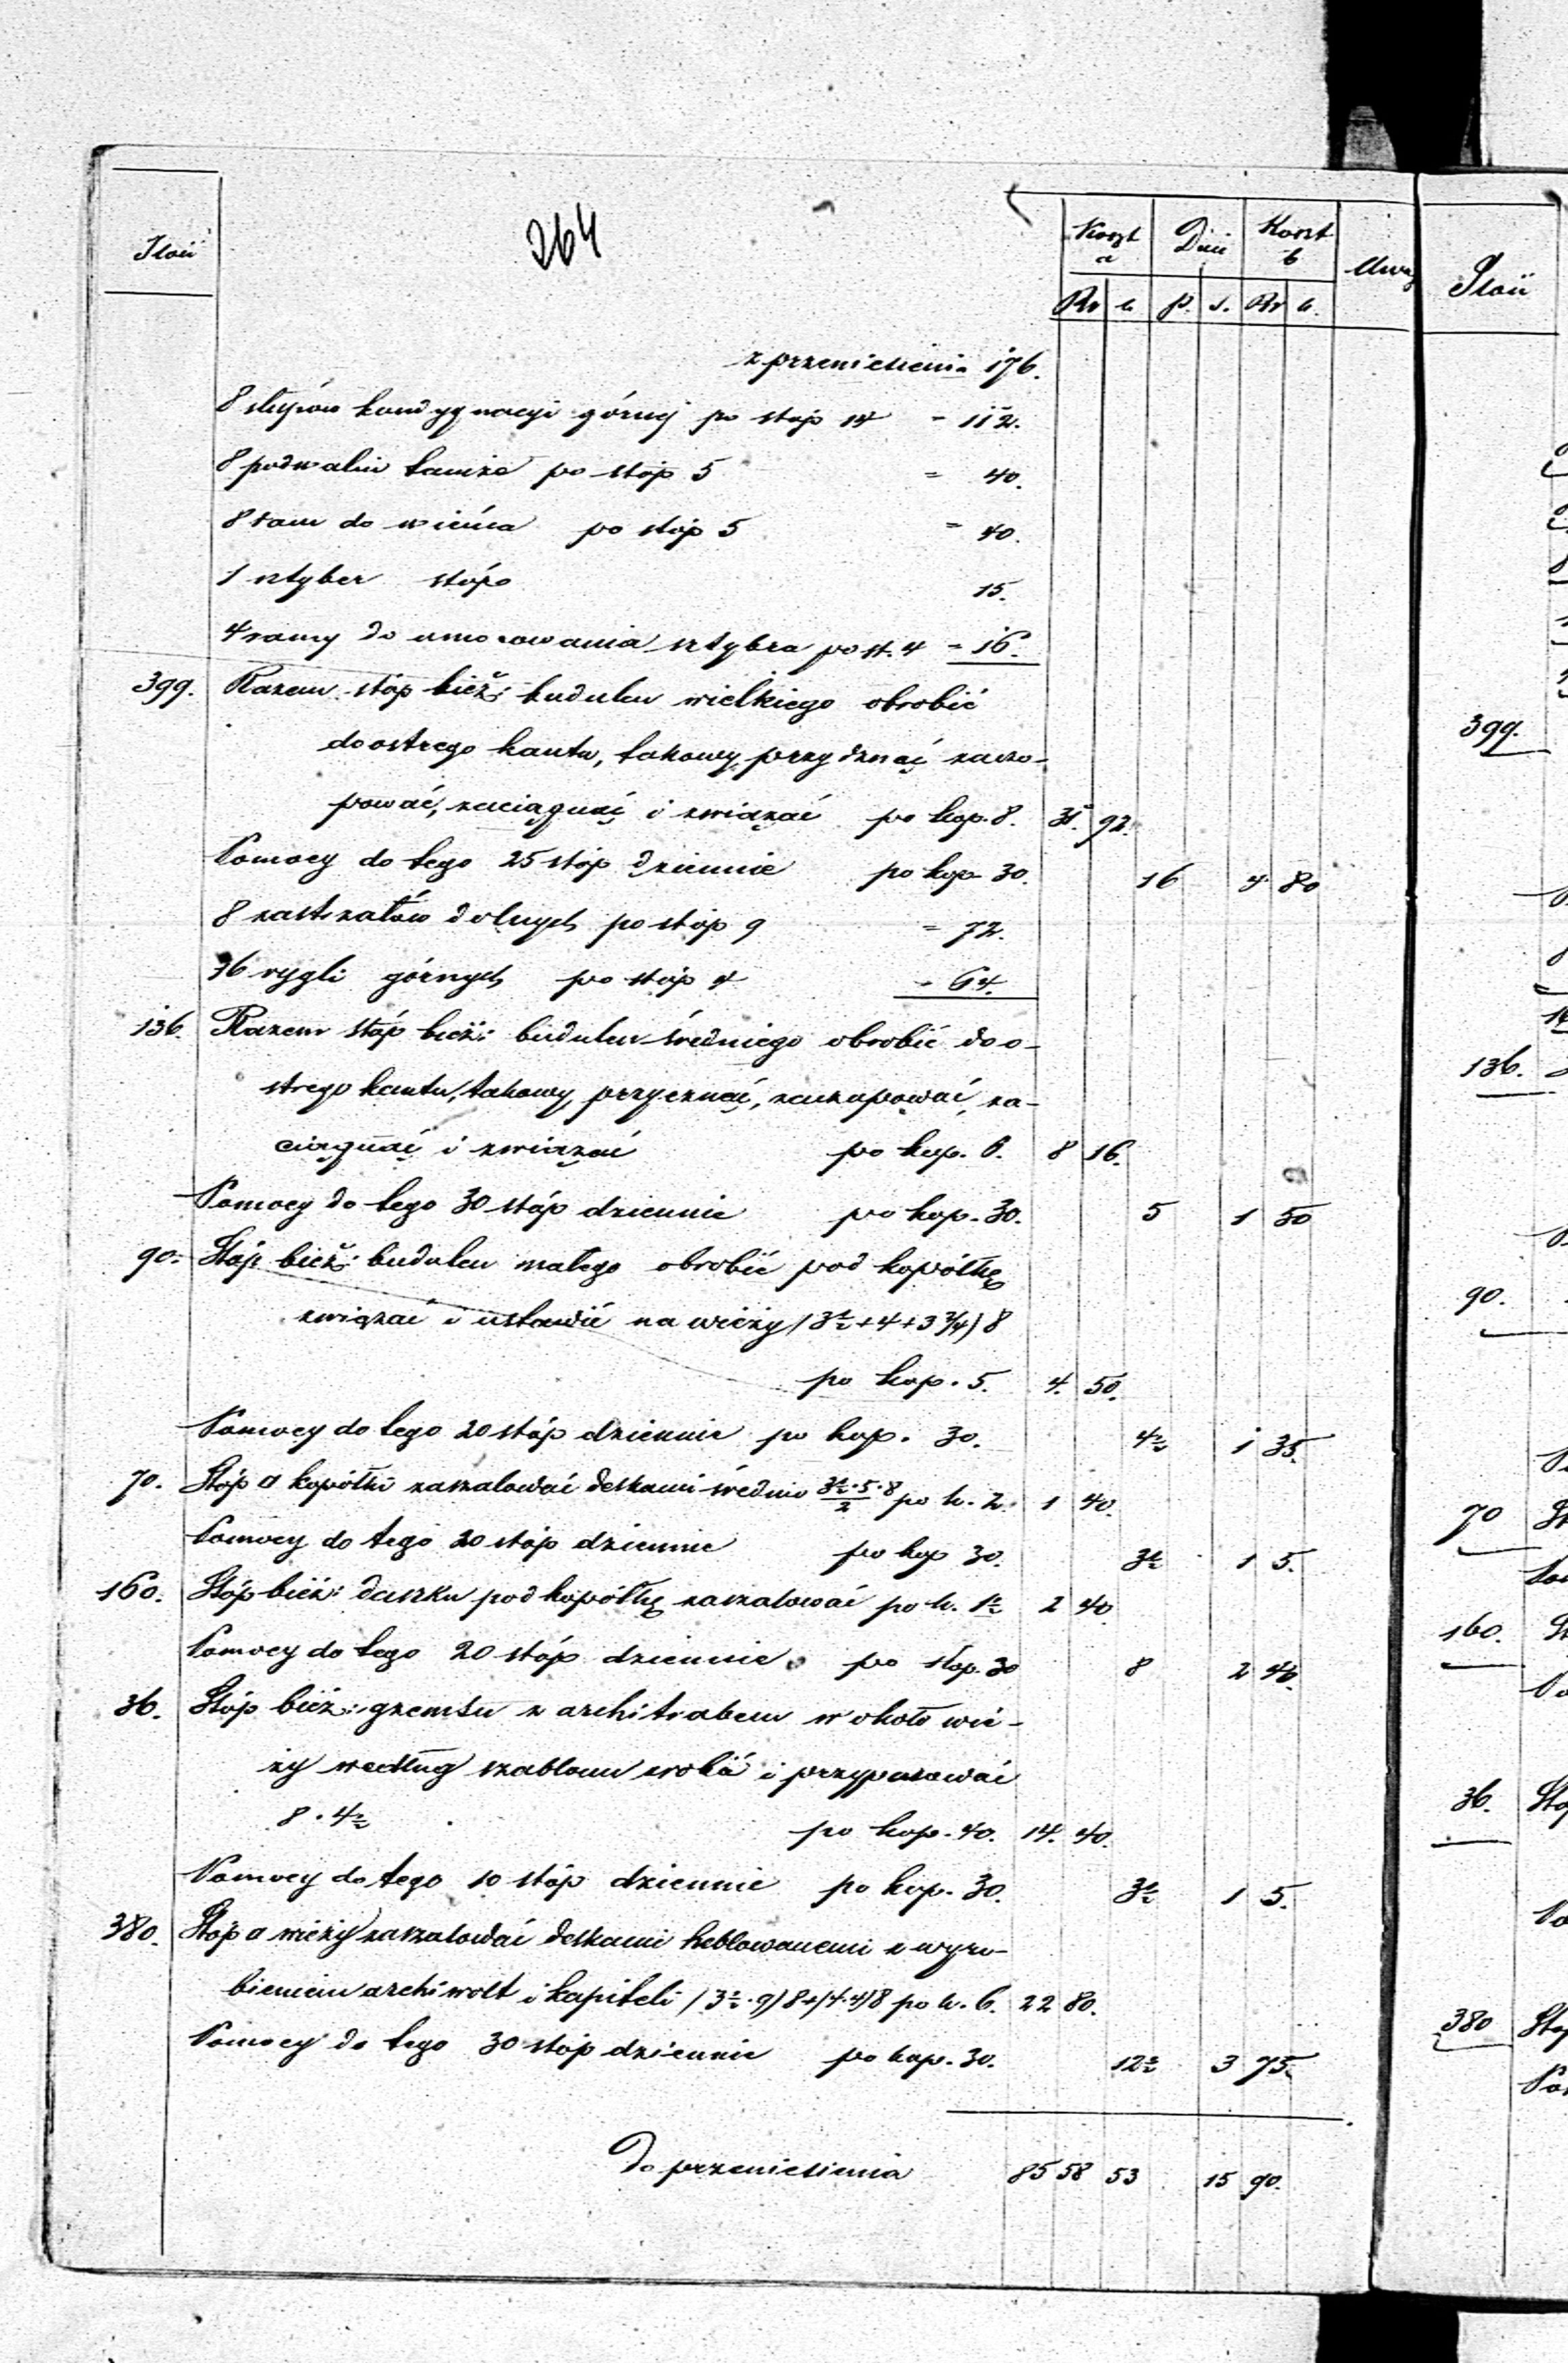 264
Ilość
Koszt a Dni Koszt b Uwag
Rs k p. s. Rs k.
z przeniesienia 176.
8 słupów kondygnacyi górnej po stóp 14 = 112.
8 podwalin tamże po stóp 5 = 40.
8 ram do wieńca po stóp 5 = 40.
1 sztyber stóp 15.
4 ramy do umocowania sztybra po st. 4 = 16.
399. Razem stóp bież: budulcu wielkiego obrobić
do ostrego kantu, takowy przyrznąć zaczo-
pować, zaciągnąć i związać po kop. 8. 31. 92.
Pomocy do tego 25 stóp dziennie po kop. 30. 16 4 80
8 zastrzałów dolnych po stóp 9 = 72.
16 rygli górnych po stóp 4 = 64.
136. Razem stóp bież: budulcu średniego obrobić do o-
strego kantu, takowy, przyrznąć, zaczopować, za-
ciągnąć i związać po kop. 6. 8 16.
Pomocy do tego 30 stóp dziennie po kop. 30. 5 1 50
90. Stóp bież: budulcu małego obrobić pod kopółkę
związać i ustawić na wieży (3½+4+3¾) 8
po kop. 5. 4. 50.
Pomocy do tego 20 stóp dziennie po kop. 30. 4½ 1 35.
70. Stóp □ kopółki zaszalować deskami średnio 3½·5·8/2 po k. 2. 1 40.
Pomocy do tego 20 stóp dziennie po kop 30. 3½ 1 5.
160. Stóp bież: daszku pod kopółkę zaszalować po k. 1½ 2 40
Pomocy do tego 20 stóp dziennie po stop. 30 8 2 40.
36. Stóp bież: gzemsu z architrabem w około wie-
ży według szablonu zrobić i przypasować
8 · 4½ po kop. 40. 14. 40.
Pomocy do tego 10 stóp dziennie po kop. 30. 3½ 1 5.
380. Stóp □ wieży zaszalować deskami heblowanemi z wyro-
bieniem archiwolt i kapiteli (3½·9) 8+(4·4) 8 po k. 6. 22 80.
Pomocy do tego 30 stóp dziennie po kop. 30. 12½ 3 75.
Do przeniesienia 85 58 53 15 90.
Ilość
399.
136.
90.
70 St
160. St
36. Stóp
380 Stóp